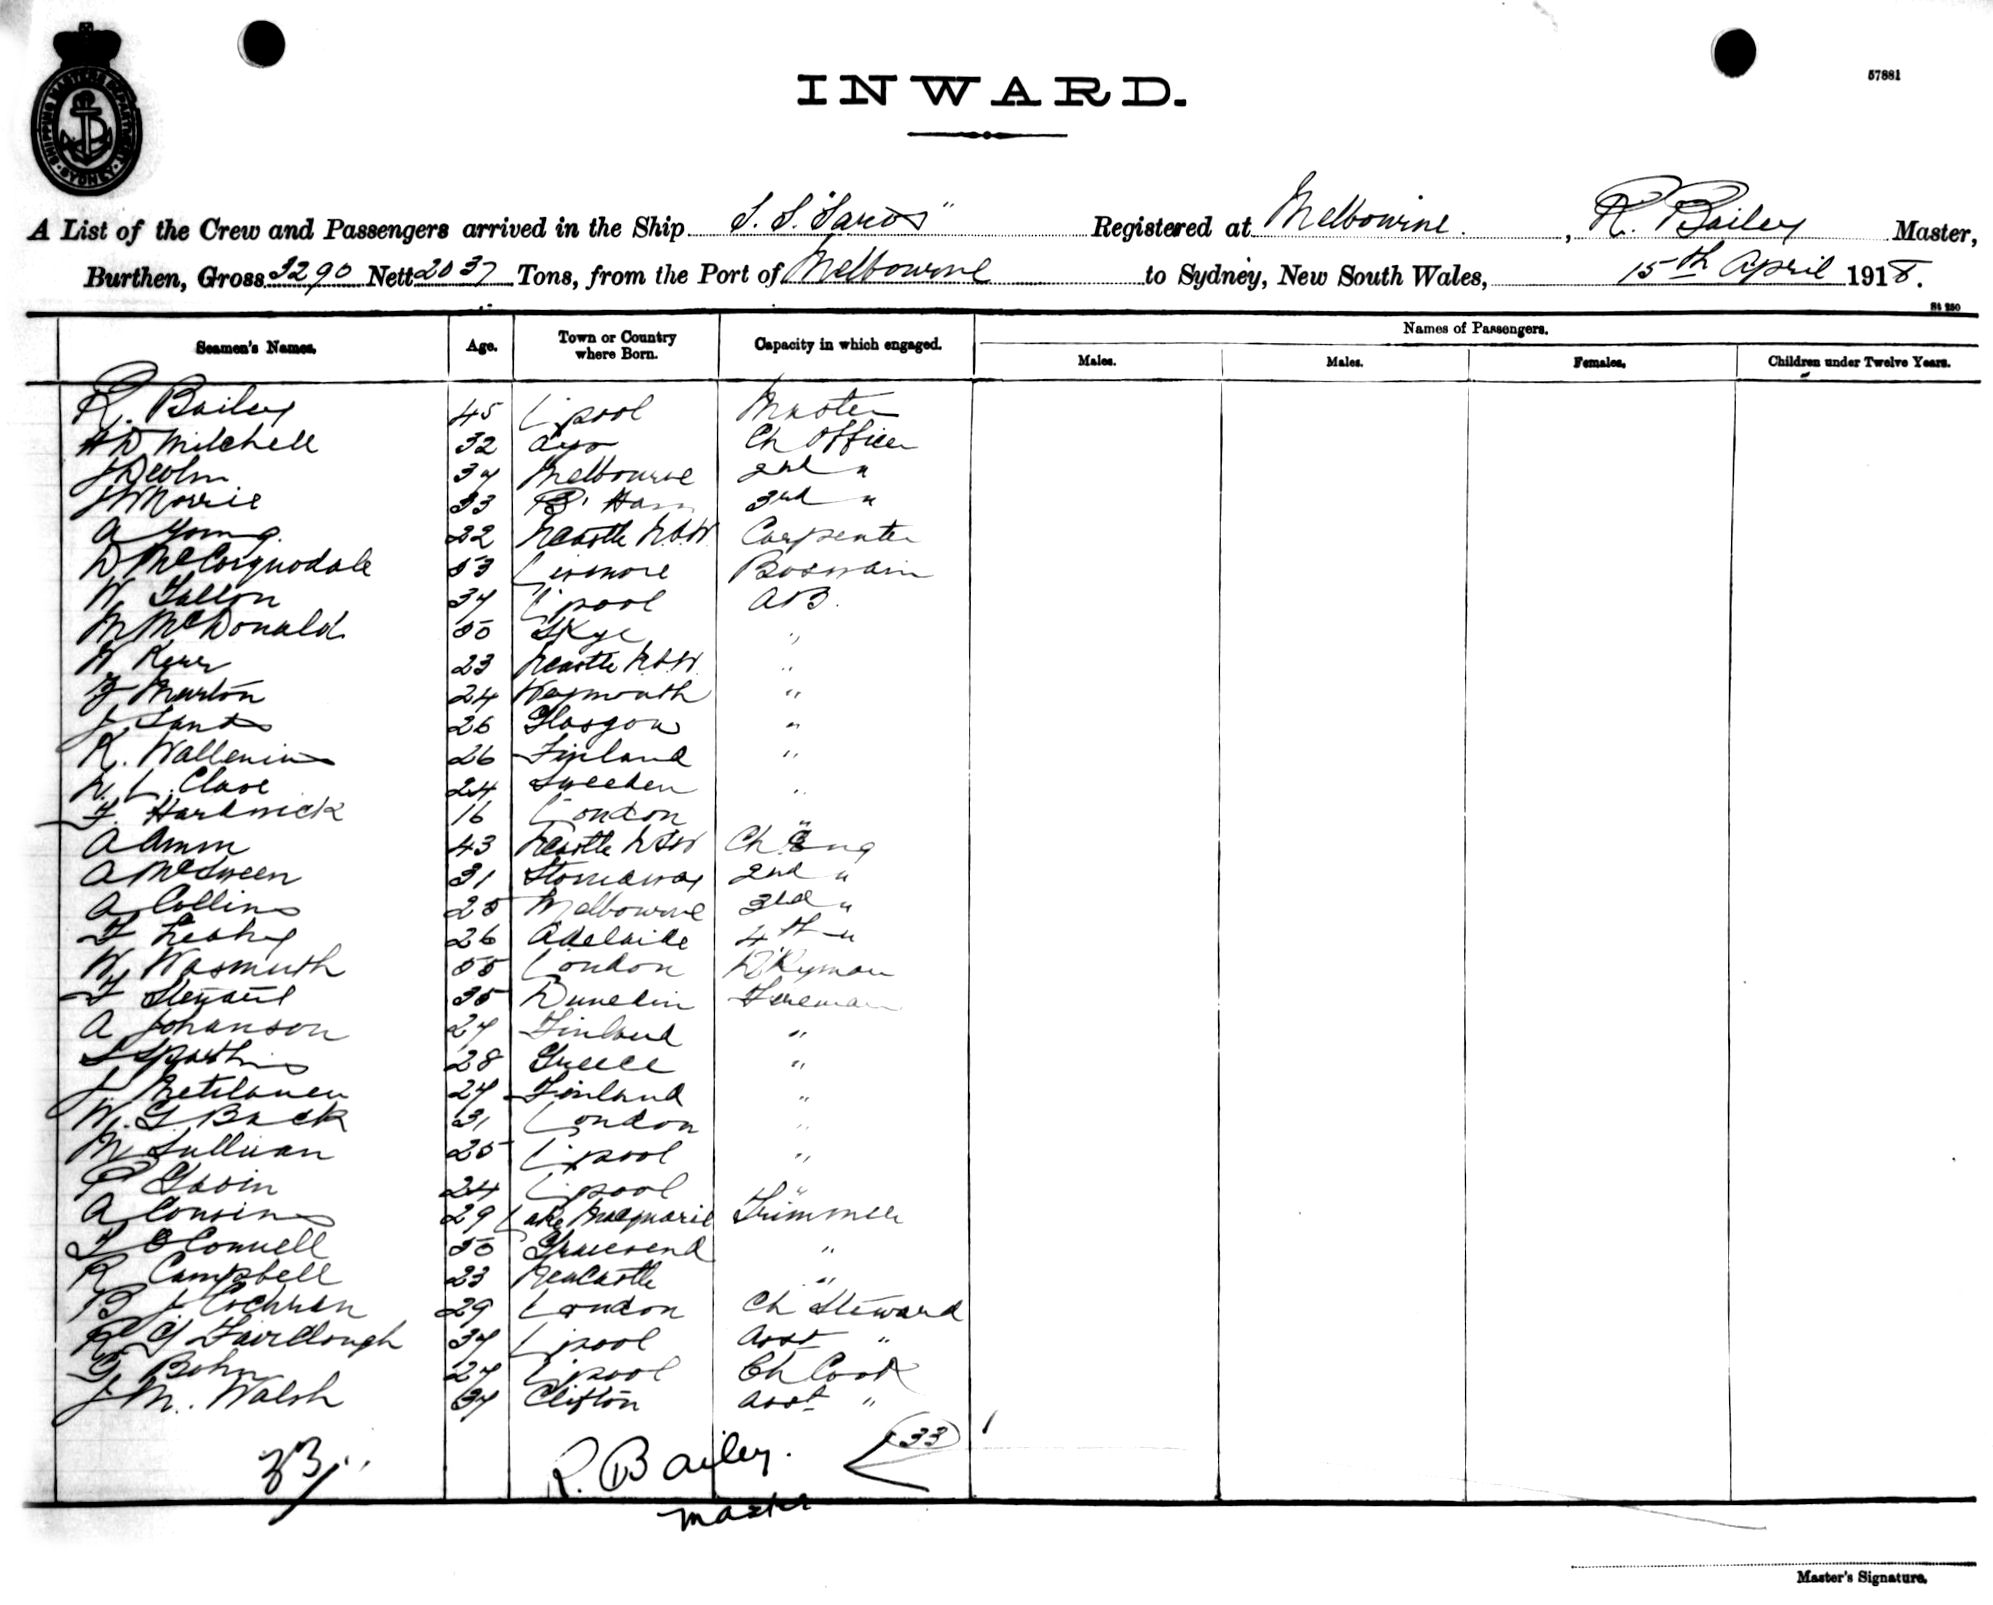 SHIPPING MASTERS DEPARTMENT · SYDNEY ·
57881
INWARD.
A List of the Crew and Passengers arrived in the Ship S.S. "Saros" Registered at Melbourne. , R. Bailey Master,
Burthen, Gross 3290 Nett 2037 Tons, from the Port of Melbourne to Sydney, New South Wales, 15th April 1918.
St 250
Seamen's Names. Age. Town or Country where Born. Capacity in which engaged. Names of Passengers.
Males. Males. Females. Children under Twelve Years.
R. Bailey 45 L'pool Master
Mitchell 32 Ayr Ch Officer
37 Melbourne 2nd "
J W Morrie 33 B'Ham 3rd "
A Young. 22 N'Castle N.S.W. Carpenter
D McCorquodale 53 Lismore Boswain
W Fallon 37 L'pool A.B.
M McDonald 50 Skye "
W Kerr 23 N'Castle N.S.W. "
F Murton 24 Weymouth "
J Sands 26 Glasgow "
K. Wallenius 26 Finland "
N. L. Clase 24 Sweden "
F. Hardwick 16 London "
A Amm 43 N'Castle N.S.W Ch Eng
A McSween 31 Stornaway 2nd "
A Collins 25 Melbourne 3rd "
F Leahy 26 Adelaide 4th "
W Wasmuth 55 London D'Kyman
F Stewart 35 Dunedin Fireman
A Johanson 27 Finland "
28 Greece "
J 27 Finland "
W. G. Back 31 London "
M Sullivan 25 L'pool "
P Gavin 24 L'pool "
A Cousins 29 Lake Macquarie Trimmer
T O'Connell 50 Gravesend "
R Campbell 23 NewCastle "
B J Cochran 29 London Ch Steward
R G Fairclough 37 L'pool Asst "
G Bohn 27 L'pool Ch Cook
J M. Walsh 37 Clifton Asst "
33 R. Bailey. 33
Master
Master's Signature.